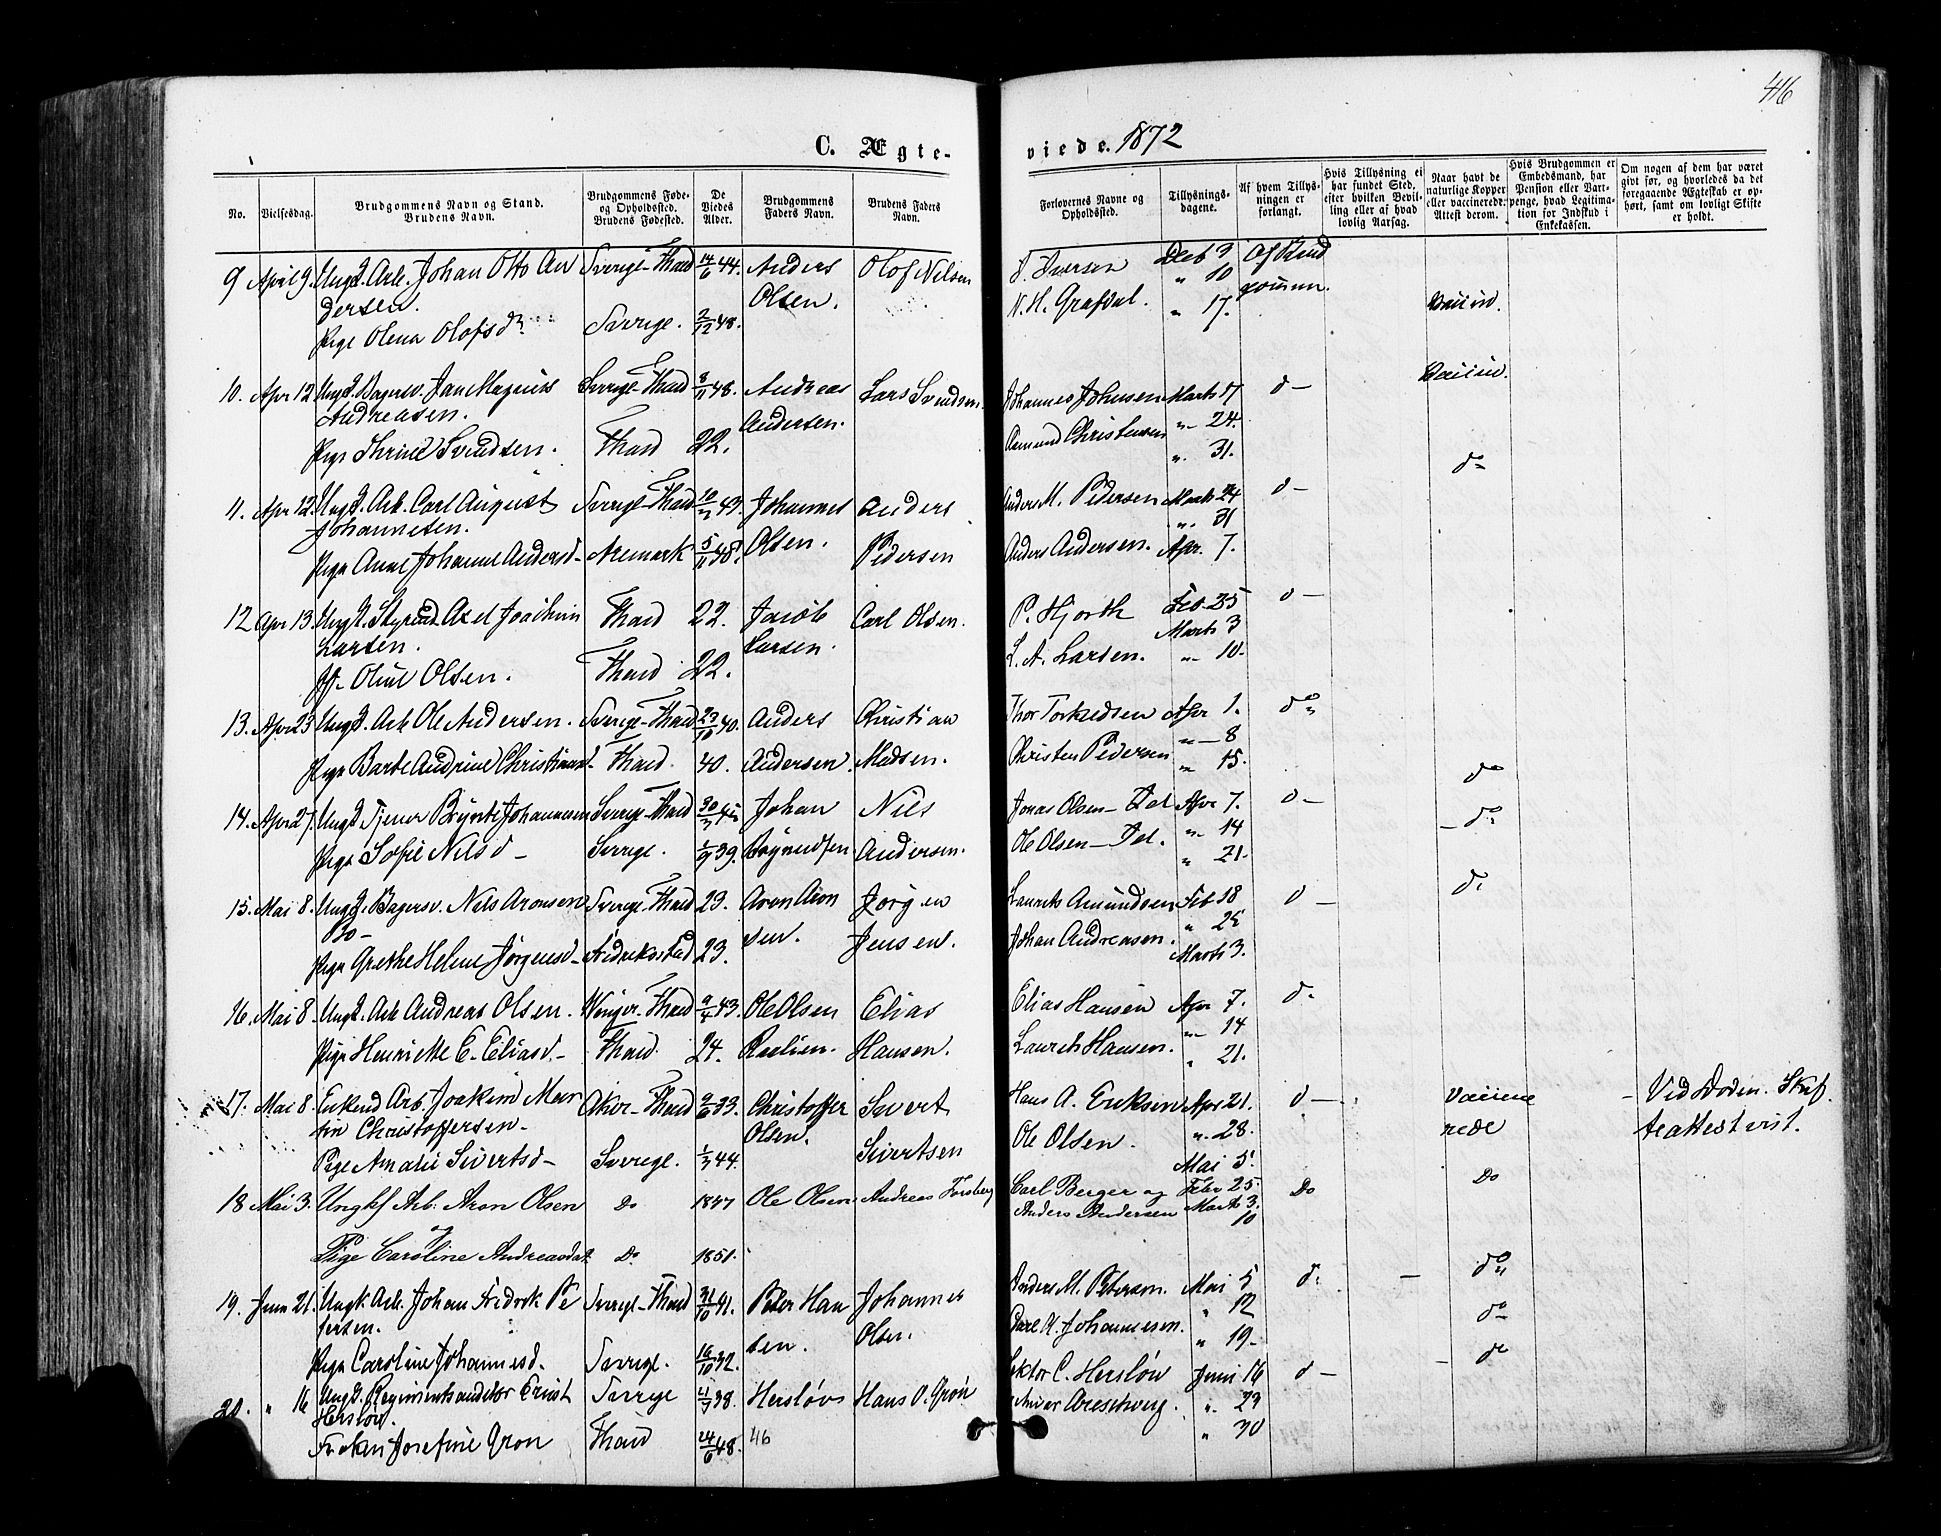 416
C. Ægte-
viede. 1872
No.
Vielsesdag.
Brudgommens Navn og Stand.
Brudens Navn.
Brudgommens Føde-
og Opholdssted.
Brudens Fødested.
De
Viedes
Alder.
Brudgommens
Faders Navn.
Brudens Faders
Navn.
Forlovernes Navne og
Opholdssted.
Tillysnings-
dagene.
Af hvem Tillys-
ningen er
forlangt.
Hvis Tillysning ei
har fundet Sted,
efter hvilken Bevil-
ling eller af hvad
lovlig Aarsag.
Naar havt de
naturlige Kopper
eller vaccinerede.
Attest derom.
Hvis Brudgommen er
Embedsmand, har
Pension eller Vart-
penge, hvad Legitima-
tion for Indskud i
Enkekassen.
Om nogen af dem har været
givt før, og hvorledes da det
foregaaende Ægteskab er op-
hørt, samt om lovligt Skifte
er holdt.
9 April 9. Ungk. Arb. Johan Otto An Sverige-Thard 14/6 44. Anders Olof Nilsen
dersen. Olsen.
Pige Olena Olofsd. Sverige. 2/12 48.
Iversen Deeb 3 Af Brud
" 10 gommen.
N. H. Grafdal. " 17.
10. Apr 12 Ungk. Bagersv. Jan Magnus Sverige-Thard 8/11 48. Andreas Lars Svendsen.
Andreasen. Andersen.
Pige Thrine Svendsen. Thard 22.
Johannes Johnsen Marts 17 d-
Amund Christensen " 24.
" 31.
11. Apr 12. Ungk. Arb. Carl August Sverige-Thard 43. Johannes Anders
Johannesen. Olsen. Pedersen
Pige Anne Johanne Andersd- Aremark 5/11 48.
Anders M. Pedersen Marts 24 d-
" 31
Anders Andersen. Apr. 7.
12 Apr 13. Ungk. Styrmd Axel Joachim Thard 22. Jacob Carl Olsen.
Larsen. Larsen.
Jf. Oline Olsen. Thard 22.
P. Hjorth Feb. 25 d-
Marts 3
L. A. Larsen. " 10.
13. Apr 23 Ungk. Arb Ole Andersen. Sverige-Thard 23/10 40. Anders Christian
Pige Barbe Andrine Christiansd- Thard. 40. Andersen. Madsen.
Thor Torkildsen Apr 1. do
" 8
Christen Pedersen " 15.
14. Apr 27. Ungk. Tjener Brynte Johannesen Sverige-Thard 30/3 45 Johan Nils
Pige Sofie Nilsd- Sverige. 1/9 39. Bryndsen Andersen.
Jonas Olsen Apr 7. d-
" 14
Ole Olsen " 21.
15. Mai 8. Ungk. Bagersv. Nils Aronsen Sverige-Thard 23. Aron Aron Jørgen
sen. Jensen.
Pige Grethe Helene Jørgensd- Fredrikstad 23.
Laurits Amundsen Feb 18 d-
" 25
Johan Andreasen. Marts 3.
16. Mai 8. Ungk. Arb Andreas Olsen. Vinger-Thard 9/4 43. Ole Olsen Elias
Pige Henriette E. Eliasd- Thard. 24. Hansen.
Elias Hansen Apr 7. d.
" 14
Laurits Hansen. " 21.
17. Mai 8. Enkemd Arb. Joakim Mar Aker-Thard 9/6 33. Christoffer Sivert
tin Christoffersen- Olsen. Sivertsen
Pige Amalie Sivertsd- Sverige. 1/3 44.
Hans A. Eriksen Apr 21. d- Vaccine Ved Døden. Skif
Ole Olsen. " 28. rede teattest vist.
Mai 5.
18 Mai 3. Ungkf Arb: Aron Olsen Do 1847 Ole Olsen Andreas Forsberg
og
Pige Caroline Andreasdat Do 1851.
Carl Berger og Febr 25. Do Do
Anders Andersen Marts 3.
10
19. Juni 21. Ungk. Arb. Johan Fredrik Pe Sverige-Thard 31/10 41. Peter Han Johannes
tersen. sen. Olsen.
Pige Caroline Johannesd. Sverige. 16/10 32.
Anders M. Petersen. Mai 5 d.
" 12
Carl A. Johannesen. " 19.
20. " 16 Ungk. Regimentsauditør Ernst Sverige 4/7 38. Hersløvs Hans O. Grøn
Hersløv.
Frøken Josefine Grøn Thard 24/6 48. 46
C. Hersløv Juni 16 d-
" 23
" 30